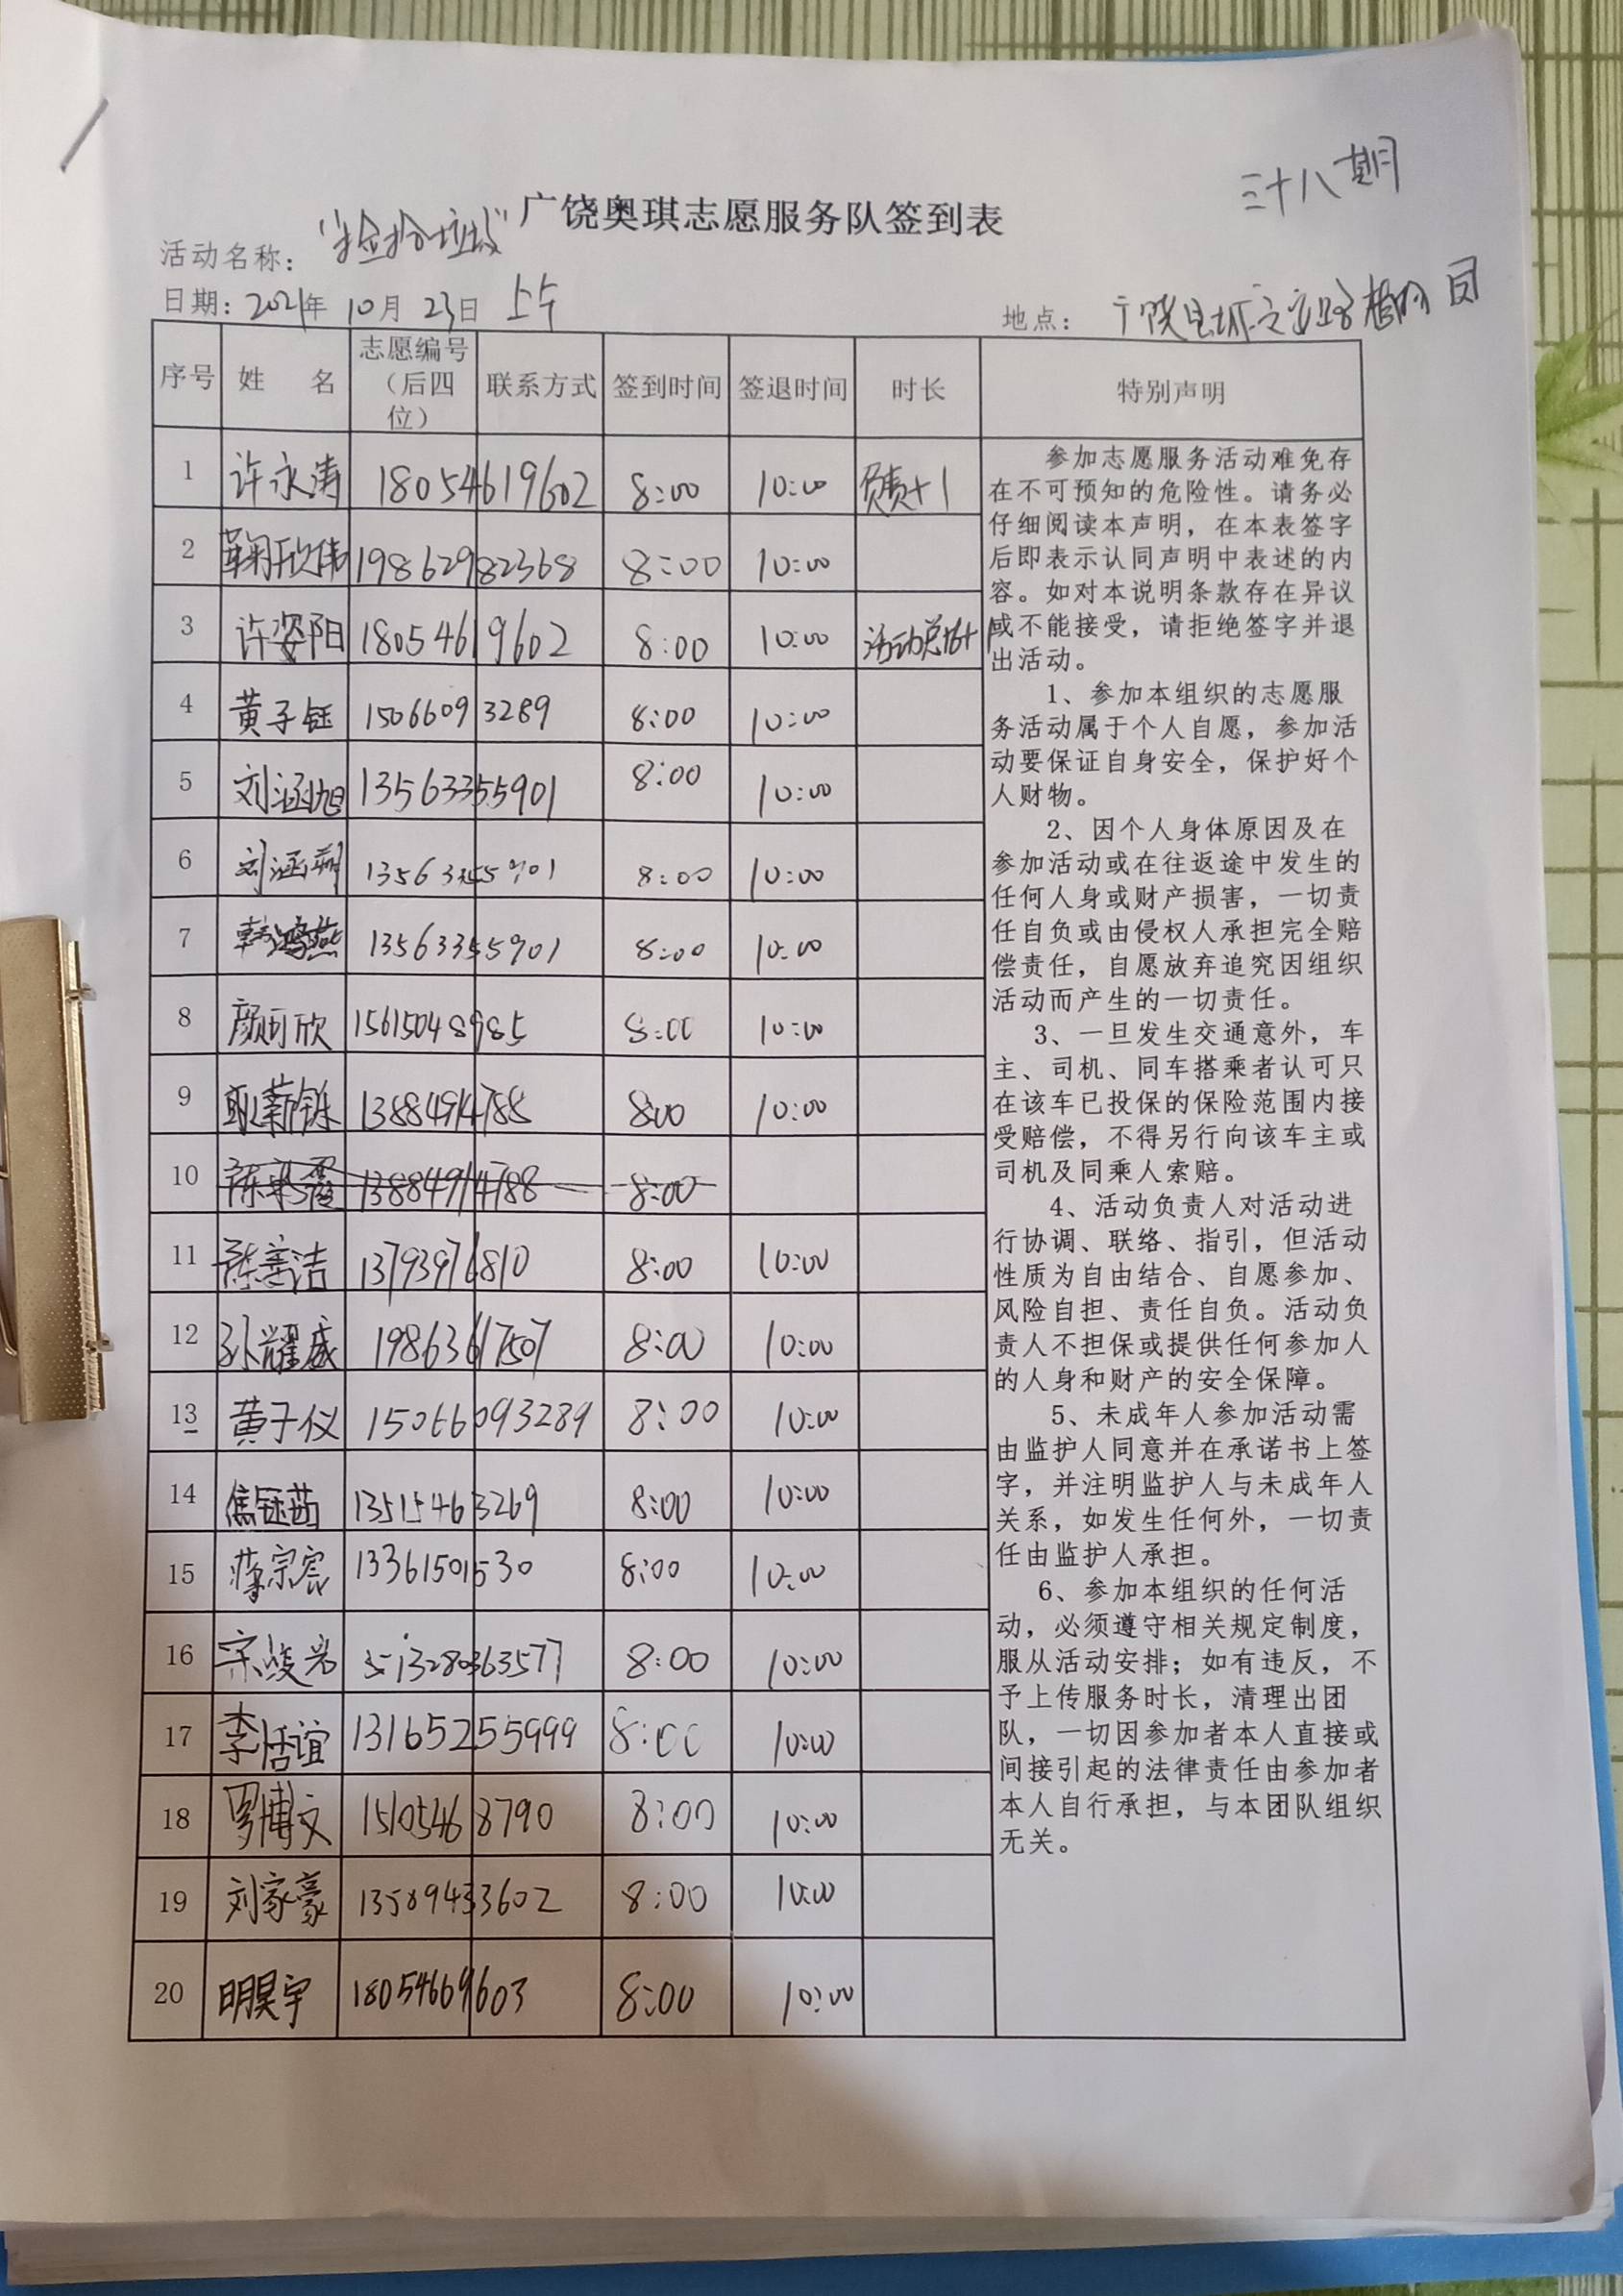 三十八期
广饶奥琪志愿服务队签到表
活动名称："捡拾垃圾"
日期：2021年 10月 23日 上午
地点：
序号 姓 名 志愿编号（后四位） 联系方式 签到时间 签退时间 时长 特别声明
1 许永涛 18054619602 8:00 10:00 负责+1
2 鞠欣伟 19862982368 8:00 10:00
3 许姿阳 18054619602 8:00 10:00 活动总结+1
4 黄子钰 15066093289 8:00 10:00
5 刘涵旭 13563355901 8:00 10:00
6 刘涵 13563355901 8:00 10:00
7 韩鸿燕 13563355901 8:00 10:00
8 颜可欣 15615048985 8:00 10:00
9 耿薪铄 13884914788 8:00 10:00
10 陈 13884914788 8:00
11 陈善洁 13793976810 8:00 10:00
12 孙耀威 19863617507 8:00 10:00
13 黄子仪 15066093289 8:00 10:00
14 焦钰茹 13515463269 8:00 10:00
15 蒋宗宸 13361501530 8:00 10:00
16 宋峻光 13280363577 8:00 10:00
17 李恬谊 13165255999 8:00 10:00
18 罗博文 15105468790 8:00 10:00
19 刘家豪 13589433602 8:00 10:00
20 明昊宇 18054669603 8:00 10:00
参加志愿服务活动难免存
在不可预知的危险性。请务必
仔细阅读本声明，在本表签字
后即表示认同声明中表述的内
容。如对本说明条款存在异议
或不能接受，请拒绝签字并退
出活动。
1、参加本组织的志愿服
务活动属于个人自愿，参加活
动要保证自身安全，保护好个
人财物。
2、因个人身体原因及在
参加活动或在往返途中发生的
任何人身或财产损害，一切责
任自负或由侵权人承担完全赔
偿责任，自愿放弃追究因组织
活动而产生的一切责任。
3、一旦发生交通意外，车
主、司机、同车搭乘者认可只
在该车已投保的保险范围内接
受赔偿，不得另行向该车主或
司机及同乘人索赔。
4、活动负责人对活动进
行协调、联络、指引，但活动
性质为自由结合、自愿参加、
风险自担、责任自负。活动负
责人不担保或提供任何参加人
的人身和财产的安全保障。
5、未成年人参加活动需
由监护人同意并在承诺书上签
字，并注明监护人与未成年人
关系，如发生任何外，一切责
任由监护人承担。
6、参加本组织的任何活
动，必须遵守相关规定制度，
服从活动安排；如有违反，不
予上传服务时长，清理出团
队，一切因参加者本人直接或
间接引起的法律责任由参加者
本人自行承担，与本团队组织
无关。